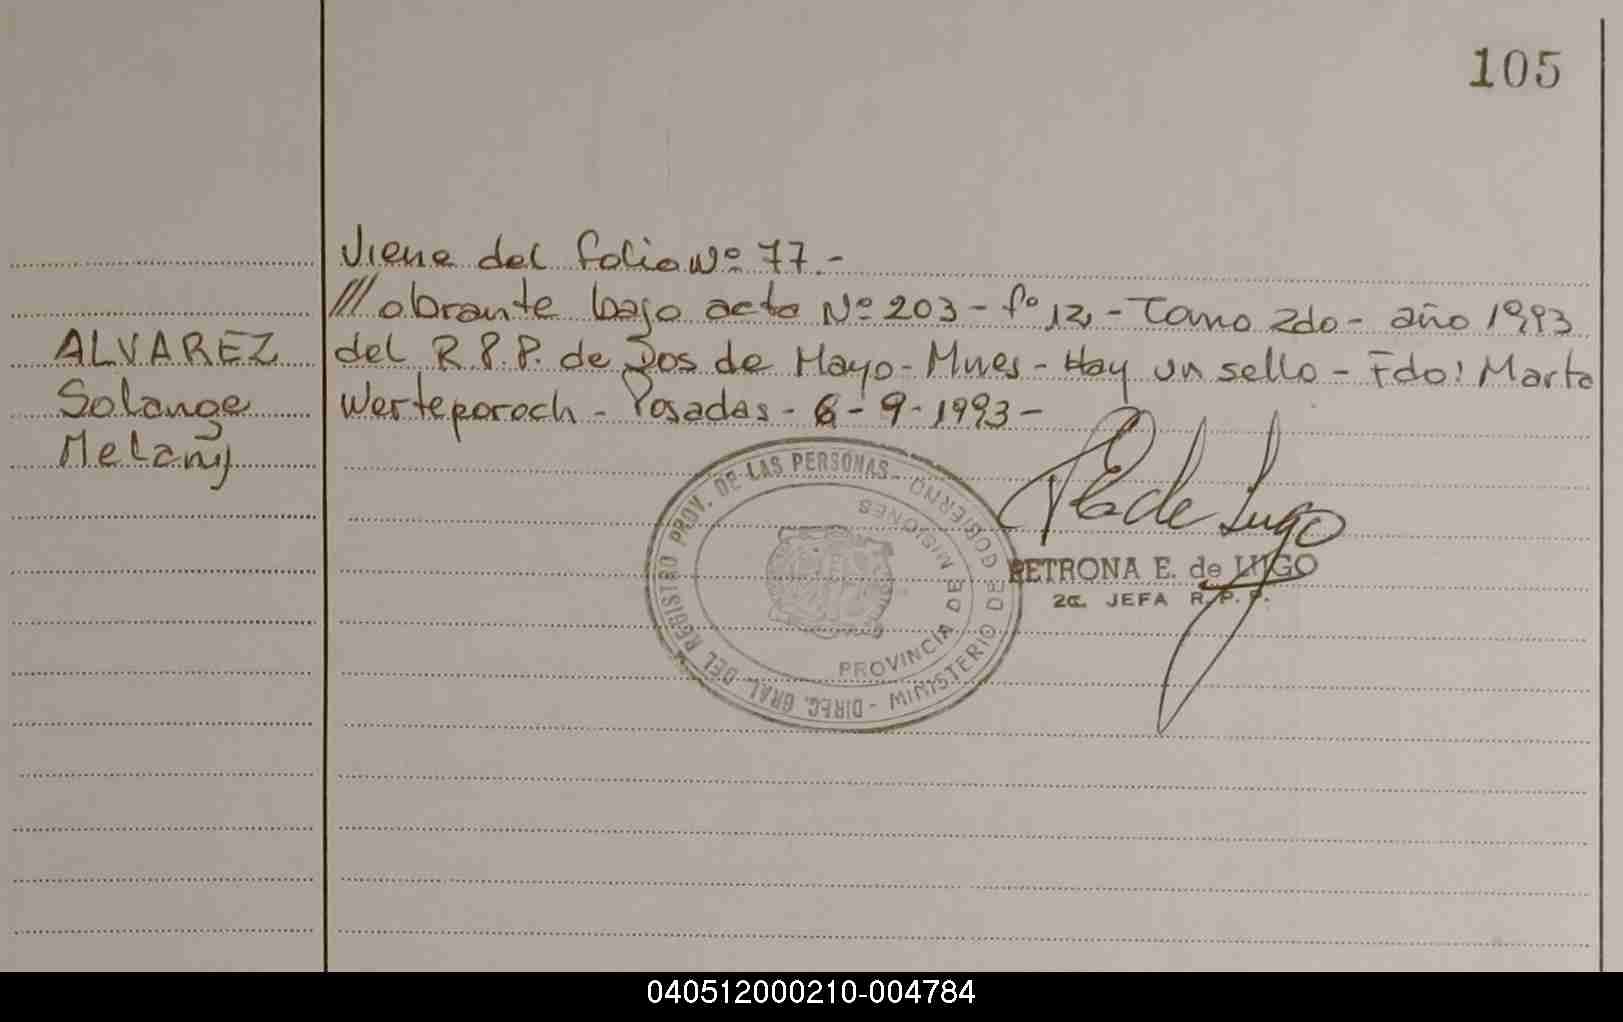 105
Viene del folio Nº 77.-
/// obrante bajo acta Nº 203 - fº 12, - Tomo 2do - año 1993
ALVAREZ
Solange
Melany
del R.P.P. de Dos de Mayo - Mnes - Hay un sello - Fdo: Marta
Werteporoch - Posadas - 6 - 9 - 1993 -
DIREC. GRAL. DEL REGISTRO PROV. DE LAS PERSONAS - MINISTERIO DE GOBIERNO
PROVINCIA DE MISIONES
PE de Lugo
PETRONA E. de LUGO
2a. JEFA R.P.P.
040512000210-004784